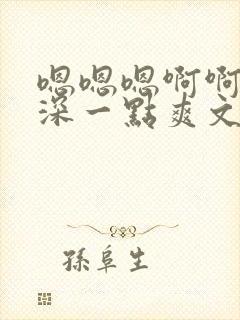 嗯嗯嗯啊啊
深一點爽文
孫阜生